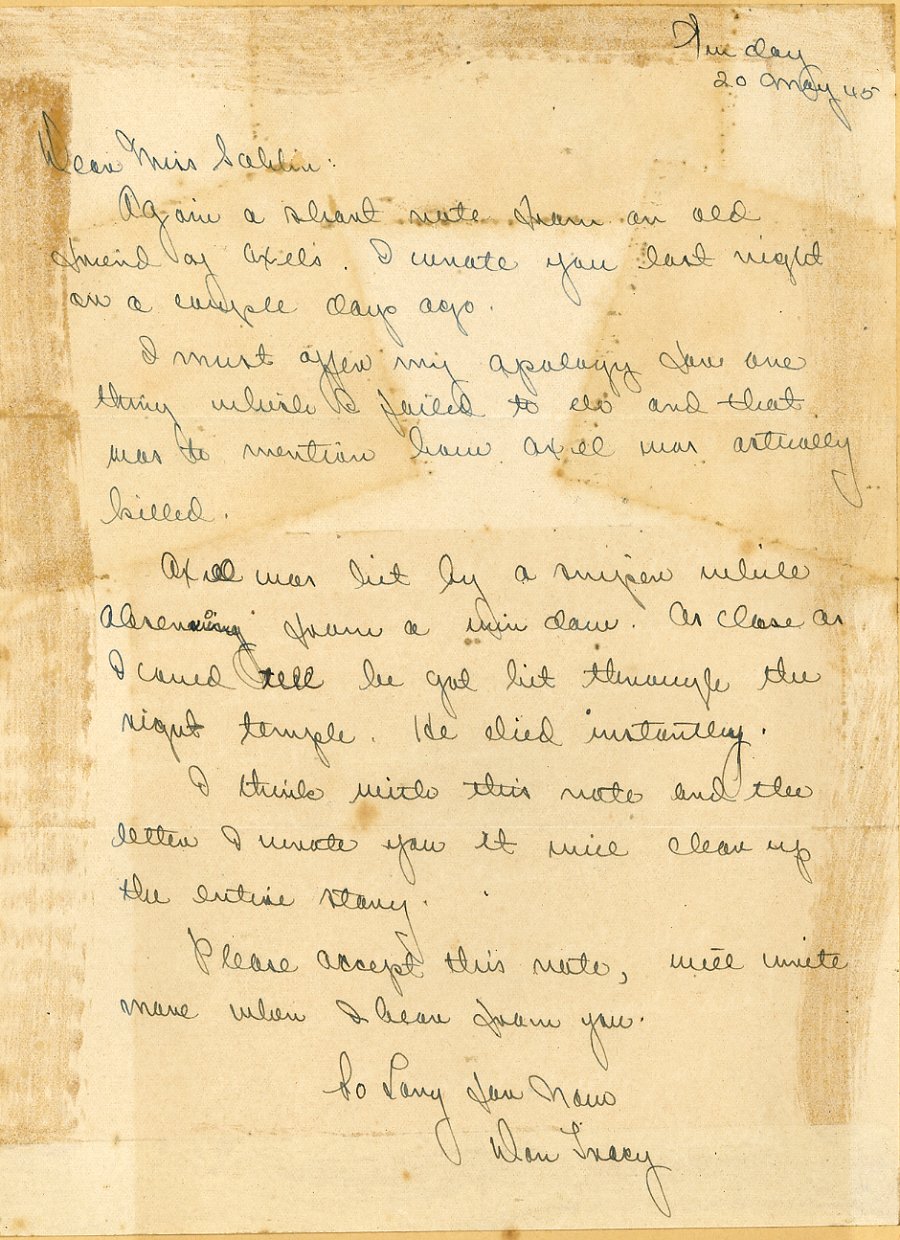 Sunday
20 May 45
Dear Miss Sahlin:
Again a short note from an old
friend of Axel's. I wrote you last night
or a couple days ago.
I must offer my apology for one
thing which I failed to do and that
was to mention how Axel was actually
killed.
Axel was hit by a sniper while
observing from a window. As close as
I could tell he got hit through the
right temple. He died instantly.
I think with this note and the
letter I wrote you it will clear up
the entire story.
Please accept this note, will write
more when I hear from you.
So Long for Now
Don Tracy